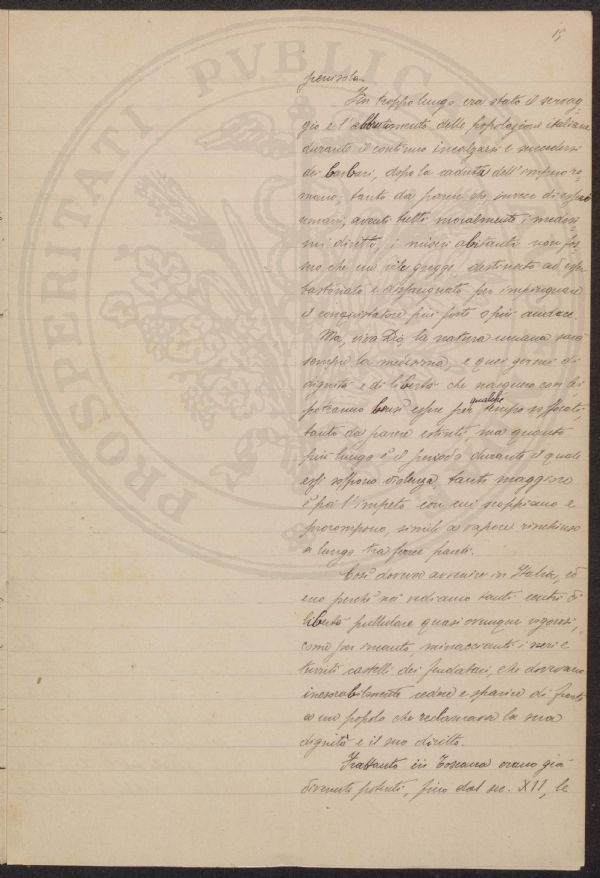 15
penisola.
Fin troppo lungo era stato il servag-
gio e l'abbrutimento delle popolazioni italiane
durante il continuo incalzarsi e succedersi
dei barbari, dopo la caduta dell'impero ro-
mano; tanto da parere che, invece di esseri
umani, aventi tutti moralmente i medesi
mi diritti, i miseri abitanti non fos
sero che un vile gregge, destinato ad esser
bastonato e dissanguato per impinguare
il conquistatore più forte o più audace.
Ma, viva Dio, la natura umana sarà
sempre la medesima, e quei germi di
dignità e di libertà che nascono con lei
potranno bensì essere per qualche tempo soffocati,
tanto da parere estinti, ma quanto
più lungo è il periodo durante il quale
essi soffrono violenza, tanto maggiore
è poi l'impeto con cui scoppiano e
prorompono, simili a vapore rinchiuso
a lungo tra forze parti.
Così doveva avvenire in Italia, ed
ecco perchè noi vediamo tanti centri di
libertà pullulare quasi ovunque vigorosi,
come per incanto, minaccianti i neri e
turriti castelli dei feudatari, che dovevano
inesorabilmente cedere e sparire di fronte
a un popolo che reclamava la sua
dignità e il suo diritto.
Frattanto in Toscana erano già
divenute potenti, fino dal sec. XII, le
PROSPERITATI PVBLICAE